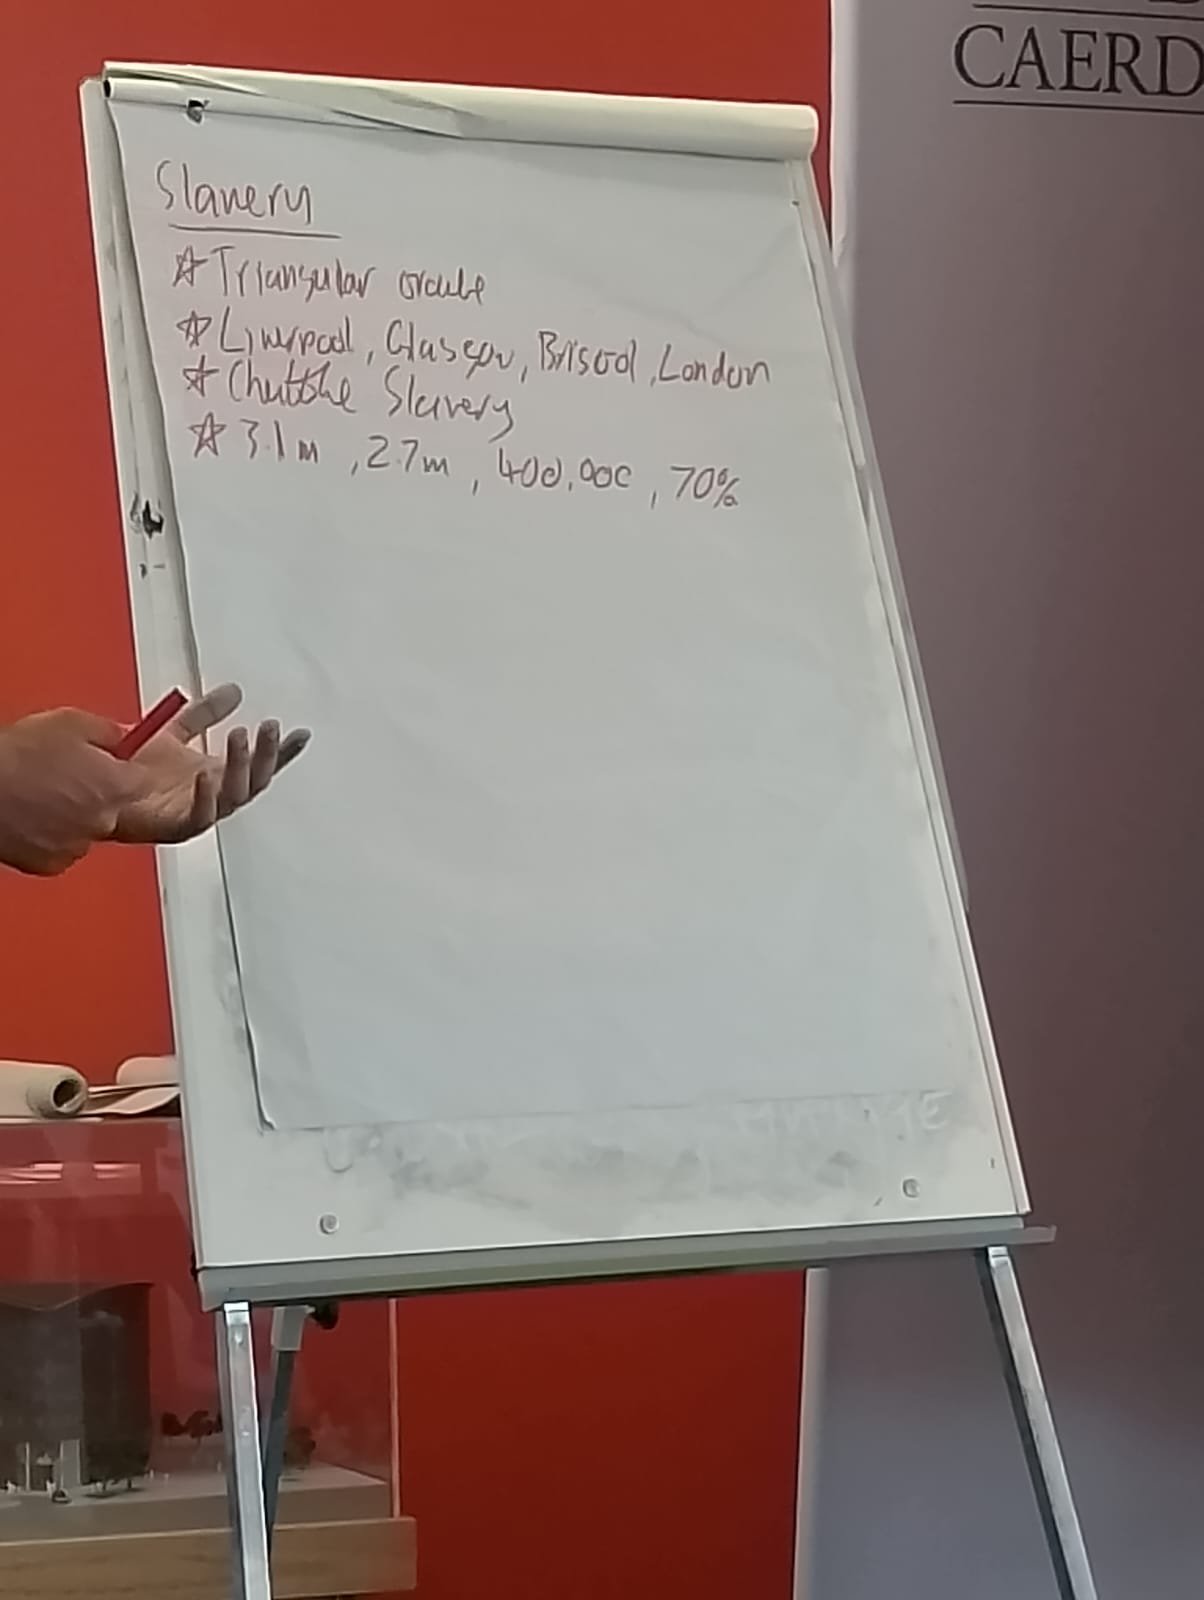 CAERD
Slavery
☆Triangular trade
☆Liverpool, Glasgow, Bristol, London
☆Chattle Slavery
☆3.1m, 2.7m, 400,000, 70%